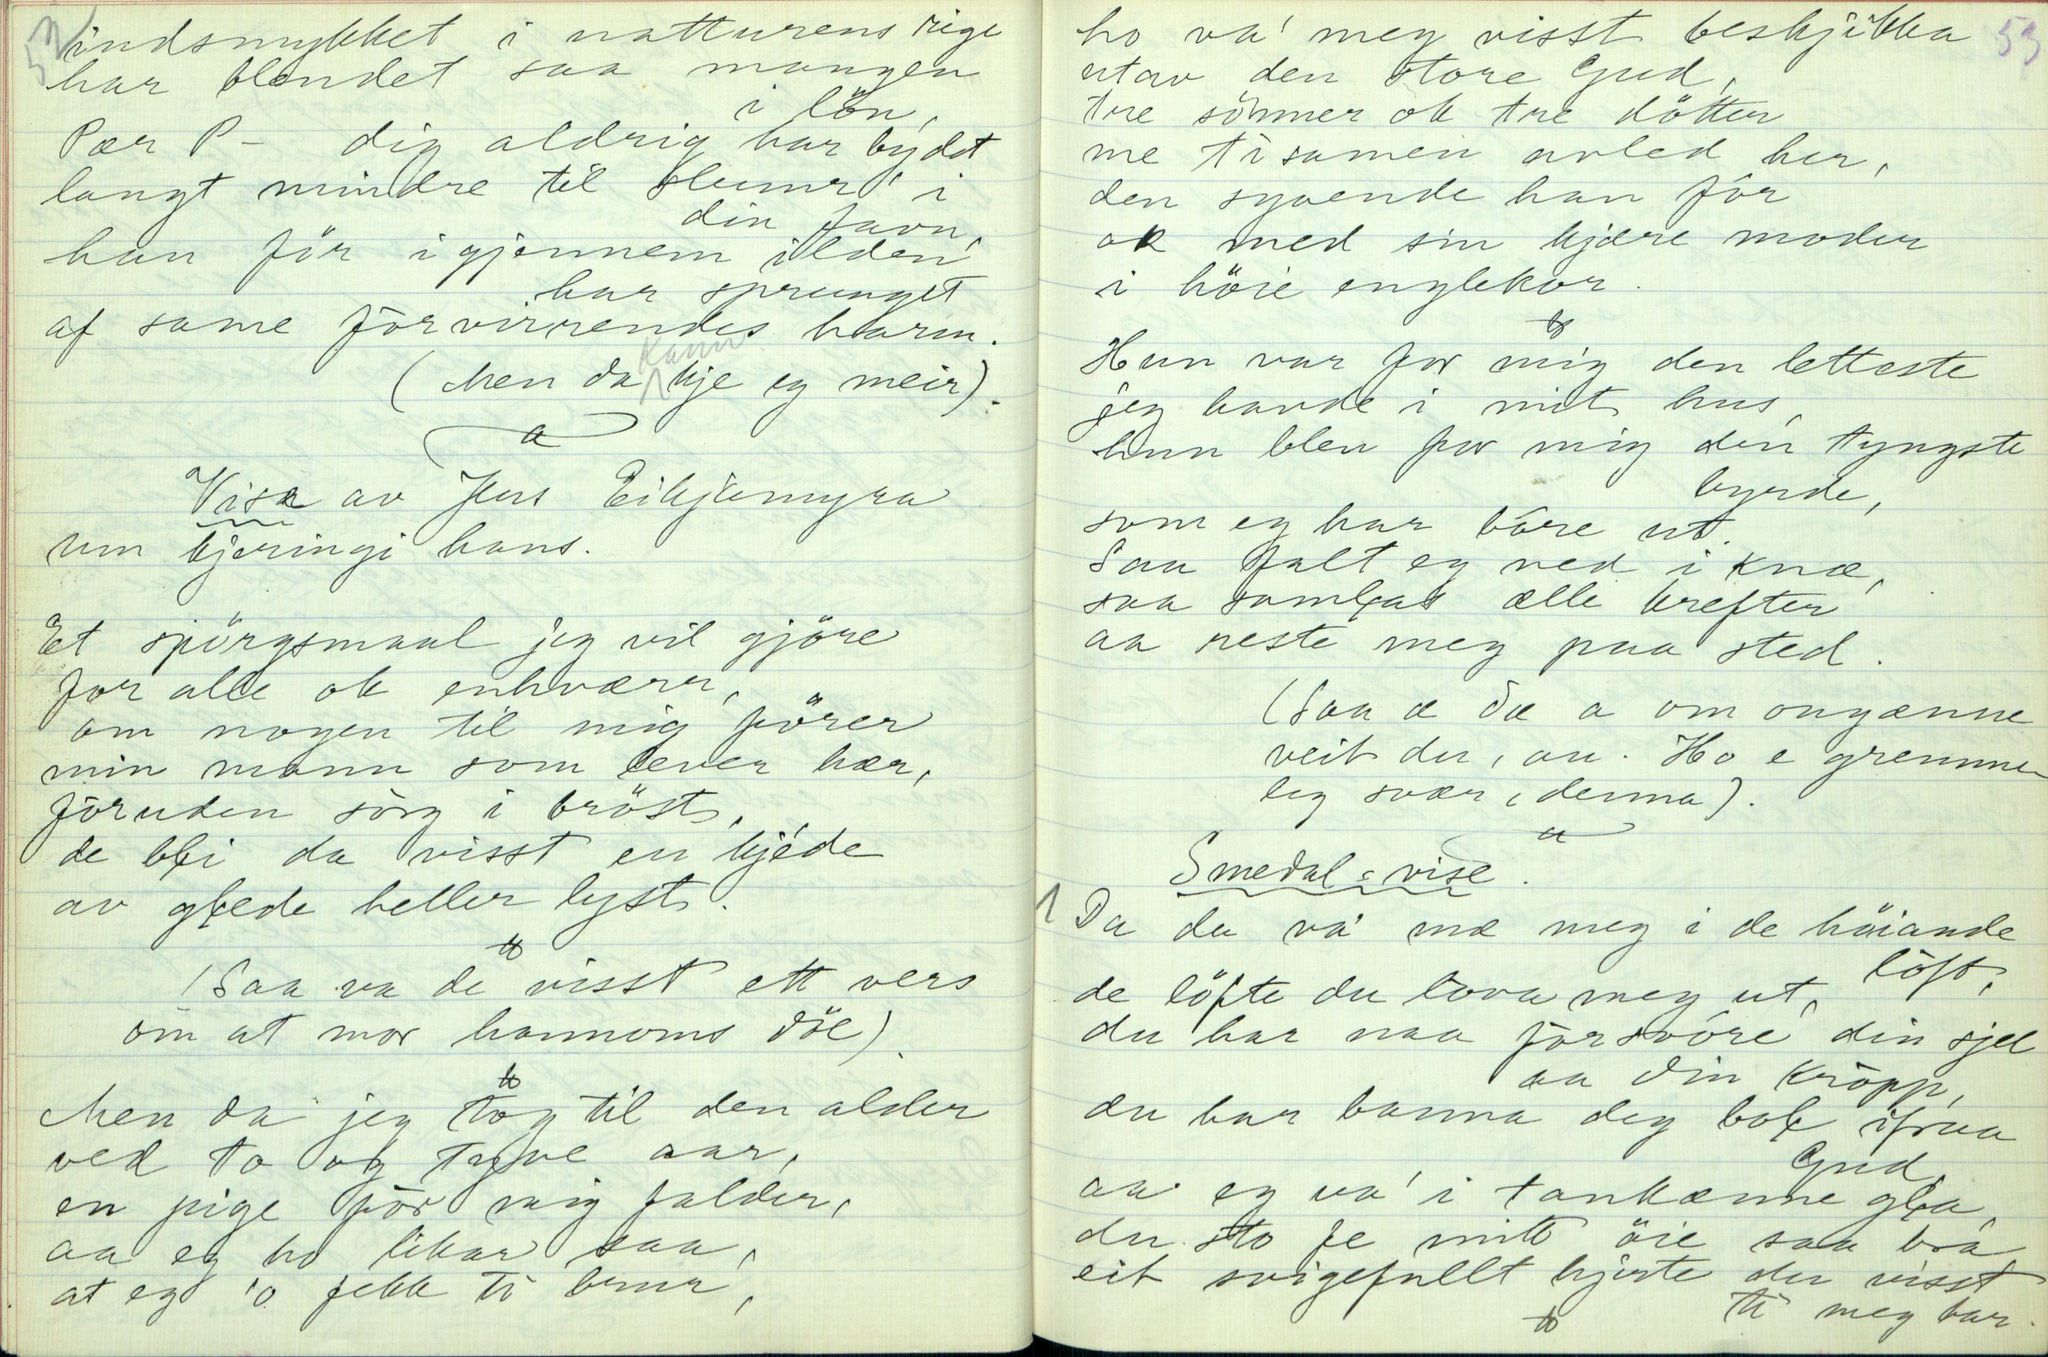 52
indsmykket i natturens rige
har blendet saa mangen
i lön,
Pær P– dig aldrig har bydet
langt mindre til slumr' i
din favn,
han för igjennem ilden
har sprunget
af same forvirrendes harm.
(Men da kann kje eg meir).
Visa av Jens Eikjemyra
um kjeringi hans.
Et spörgsmaal jeg vil gjöre
for alle ok enhværr,
om nogen til mig hörer
min mann som lever hær,
foruden sorg i bröst,
de bli da visst en kjéde
av glede heller lyst.
(Saa va de visst ett vers
om at mor hannoms döe)
Men da jeg tog til den alder
ved to og tyve aar,
en pige för mig falder,
aa eg ho likar saa,
at eg 'o fekk ti brur,
53
ho va' meg visst beskjikka
utav den store Gud,
tre sönner ok tre dötter
me ti samen avled her,
den syvende han för
ok med sin kjære moder
i höie englekor.
Hun var for mig den letteste
jeg havde i mit hus,
hun blev for mig den tyngste
byrde,
som eg har båre ut.
Saa falt eg ned i knæ,
saa samlas ælle krefter
aa reste meg paa sted.
(Saa æ da a om ongænne
veit du, au. Ho e gremme
leg svær, denna).
Smedal-vise.
1 Da du va' mæ meg i de höiande
loft,
de löfte du lova meg ut,
du har naa forsvöre din sjel
aa din kropp,
du har banna deg bol ifraa
Gud,
aa eg va' i tankænne gla,
du sto fe mitt öie saa bra
eit svigefullt hjerte du visst
ti meg bar.